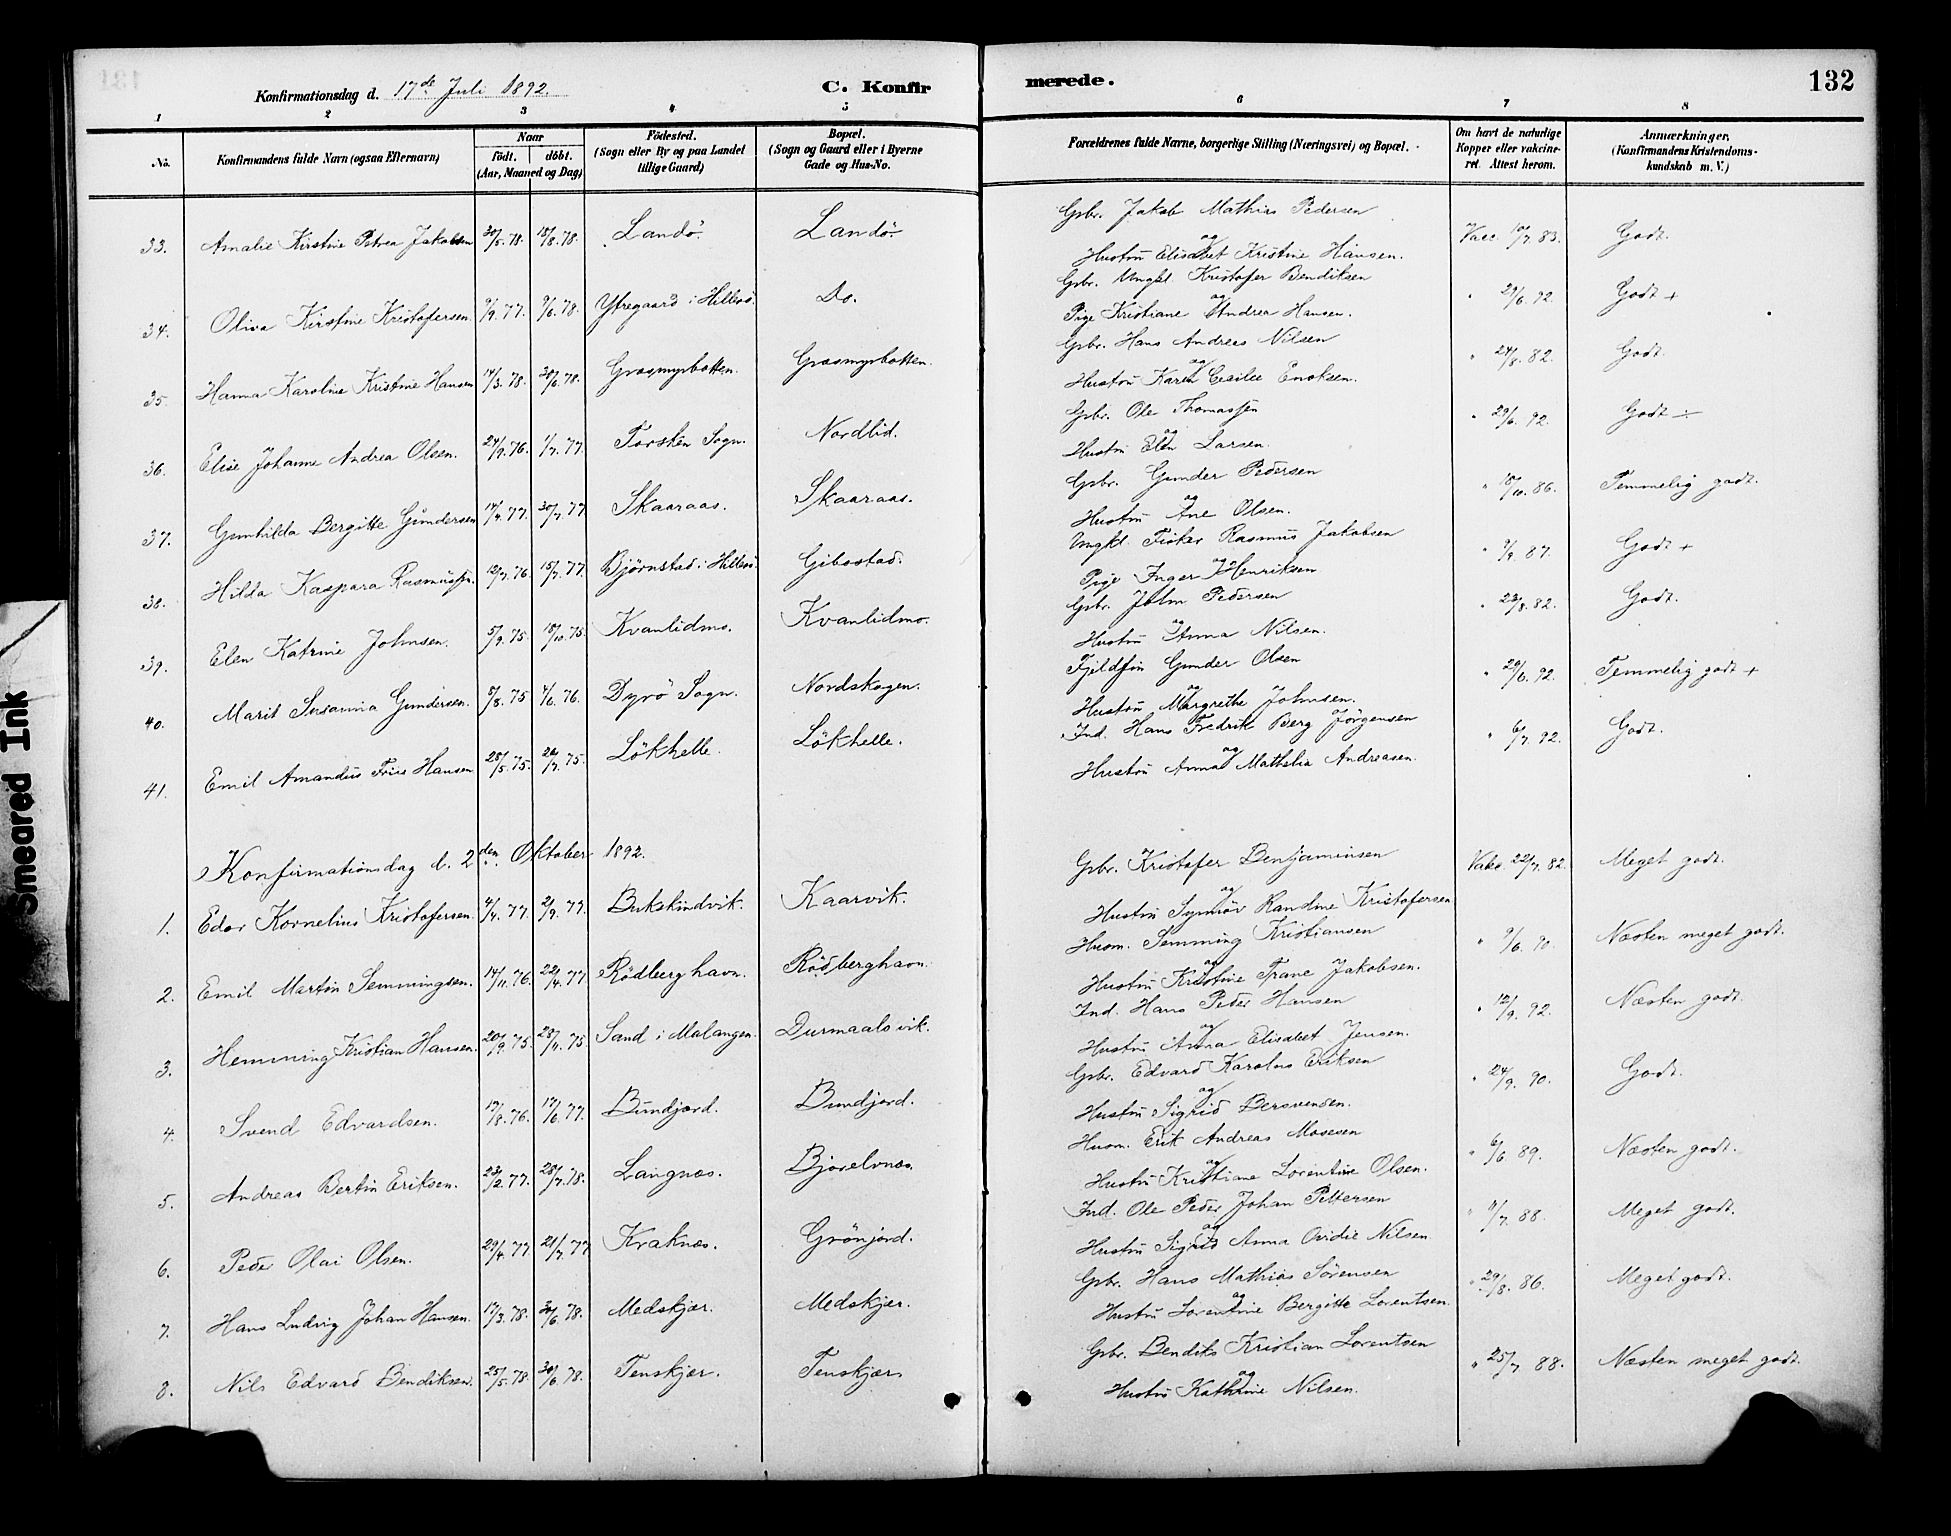 Konfirmationsdag d. 17de Juli 1892. C. Konfirmerede. 132
1 2 3 4 5 6 7 8
No. Konfirmandens fulde Navn (ogsaa Efternavn) Naar født. døbt. (Aar, Maaned og Dag) Fødested. (Sogn eller By og paa Landet tillige Gaard) Bopæl. (Sogn og Gaard eller i Byerne Gade og Hus-No. Forældrenes fulde Navne, borgerlige Stilling (Næringsvei) og Bopæl. Om havt de naturlige Kopper eller vakcineret. Attest herom. Anmærkninger. (Konfirmandens Kristendomskundskab m. V.)
33. Amalie Kirstine Petrea Jakobsen 30/5.78. 18/8.78. Landö. Landö. Gbr. Jakob Mathias Pedersen og Hustru Elisabet Kristine Hansen. Vacc. 10/7.83. Godt.
34. Oliva Kirstine Kristofersen. 9/9.77. 9/6.78. Ytregaard i Hillesö. Do. Gbr. Ungkl. Kristofer Bendiksen og Pige Kristiane Andrea Hansen. " 29/6.92. Godt +
35. Hanna Karoline Kristine Hansen 14/3.78. 30/6.78. Græsmyrbotten. Græsmyrbotten. Gbr. Hans Andreas Nilsen og Hustru Karen Cecilie Enoksen. " 24/8.82. Godt.
36. Elise Johanne Andrea Olsen. 24/9.76. 1/7.77. Torsken Sogn. Nordlid. Gbr. Ole Thomassen og Hustru Elen Larsen. " 29/6.92. Godt ÷
37. Gunhilda Bergitte Gundersen 14/4.77. 30/7.77. Skaaraas. Skaaraas. Gbr. Gunder Pedersen og Hustru Ane Olsen. " 18/10.86. Temmelig godt.
38. Hilda Kaspara Rasmussen. 12/7.76. 15/7.77. Bjørnstad i Hillesö. Gibostad. Ungkl. Fisker Rasmus Jakobsen og Pige Inger Henriksen " 9/9.87. Godt +
39. Elen Katrine Johnsen. 5/9.75. 18/10.75. Kvanlidmo. Kvanlidmo. Gbr. John Pedersen og Hustru Anna Nilsen. " 23/8.82. Godt.
40. Marit Susanna Gundersen. 5/8.75 4/6.76. Dyrö Sogn. Nordskogen. Fjeldfin Gunder Olsen og Hustru Margrethe Johnsen. " 29/6.92. Temmelig godt +
41. Emil Amandus Friis Hansen 28/5.75. 26/7.75. Lökhelle. Lökhelle. Ind. Hans Fredrik Berg Jörgensen og Hustru Anna Mathilia Andreasen. " 6/7.92. Godt.
Konfirmationsdag d. 2den Oktober 1892.
1. Edor Kornelius Kristofersen. 4/4.77. 2/9.77. Bukskindvik. Kaarvik. Gbr. Kristofer Benjaminsen og Hustru Synnöv Randine Kristofersen Vakc. 22/7.82. Meget godt.
2. Emil Martin Semmingsen. 14/11.76. 22/4.77 Rödberghavn. Rödberghavn. Husm. Semming Kristiansen og Hustru Kristine Trane Jakobsen. " 9/6.90. Næsten meget godt.
3. Hemming Kristian Hansen. 20/9.75. 28/11.75. Sand i Malangen. Durmaalsvik. Ind. Hans Peder Hansen og Hustru Anna Elisabet Jensen. " 12/9.92. Næsten godt.
4. Svend Edvardsen. 19/8.76. 17/6.77. Bundjord. Bundjord. Gbr. Edvard Karolus Eriksen og Hustru Sigrid Bersvendsen. " 24/9.90. Godt.
5. Andreas Bertin Eriksen. 23/2.77. 28/7.78. Langnæs. Bjorelvnæs. Husm. Erik Andreas Mosesen og Hustru Kristiane Lorentine Olsen. " 6/6.89. Næsten godt.
6. Peder Olai Olsen. 29/4.77. 21/7.77 Kraknæs. Grönjord. Ind. Ole Peder Johan Pettersen og Hustru Sigrid Anna Ovidie Nilsen " 8/7.88. Meget godt.
7. Hans Ludvig Johan Hansen. 17/3.78. 30/6.78. Medskjær. Medskjær. Gbr. Hans Mathias Sörensen og Hustru Lorentine Bergitte Lorentsen. " 29/8.86. Meget godt.
8. Nils Edvard Bendiksen. 25/5.78 30/6.78. Tenskjær. Tenskjær Gbr. Bendiks Kristian Lorentsen og Hustru Kathrine Nilsen. " 25/7.88. Næsten meget godt.
Smeared Ink